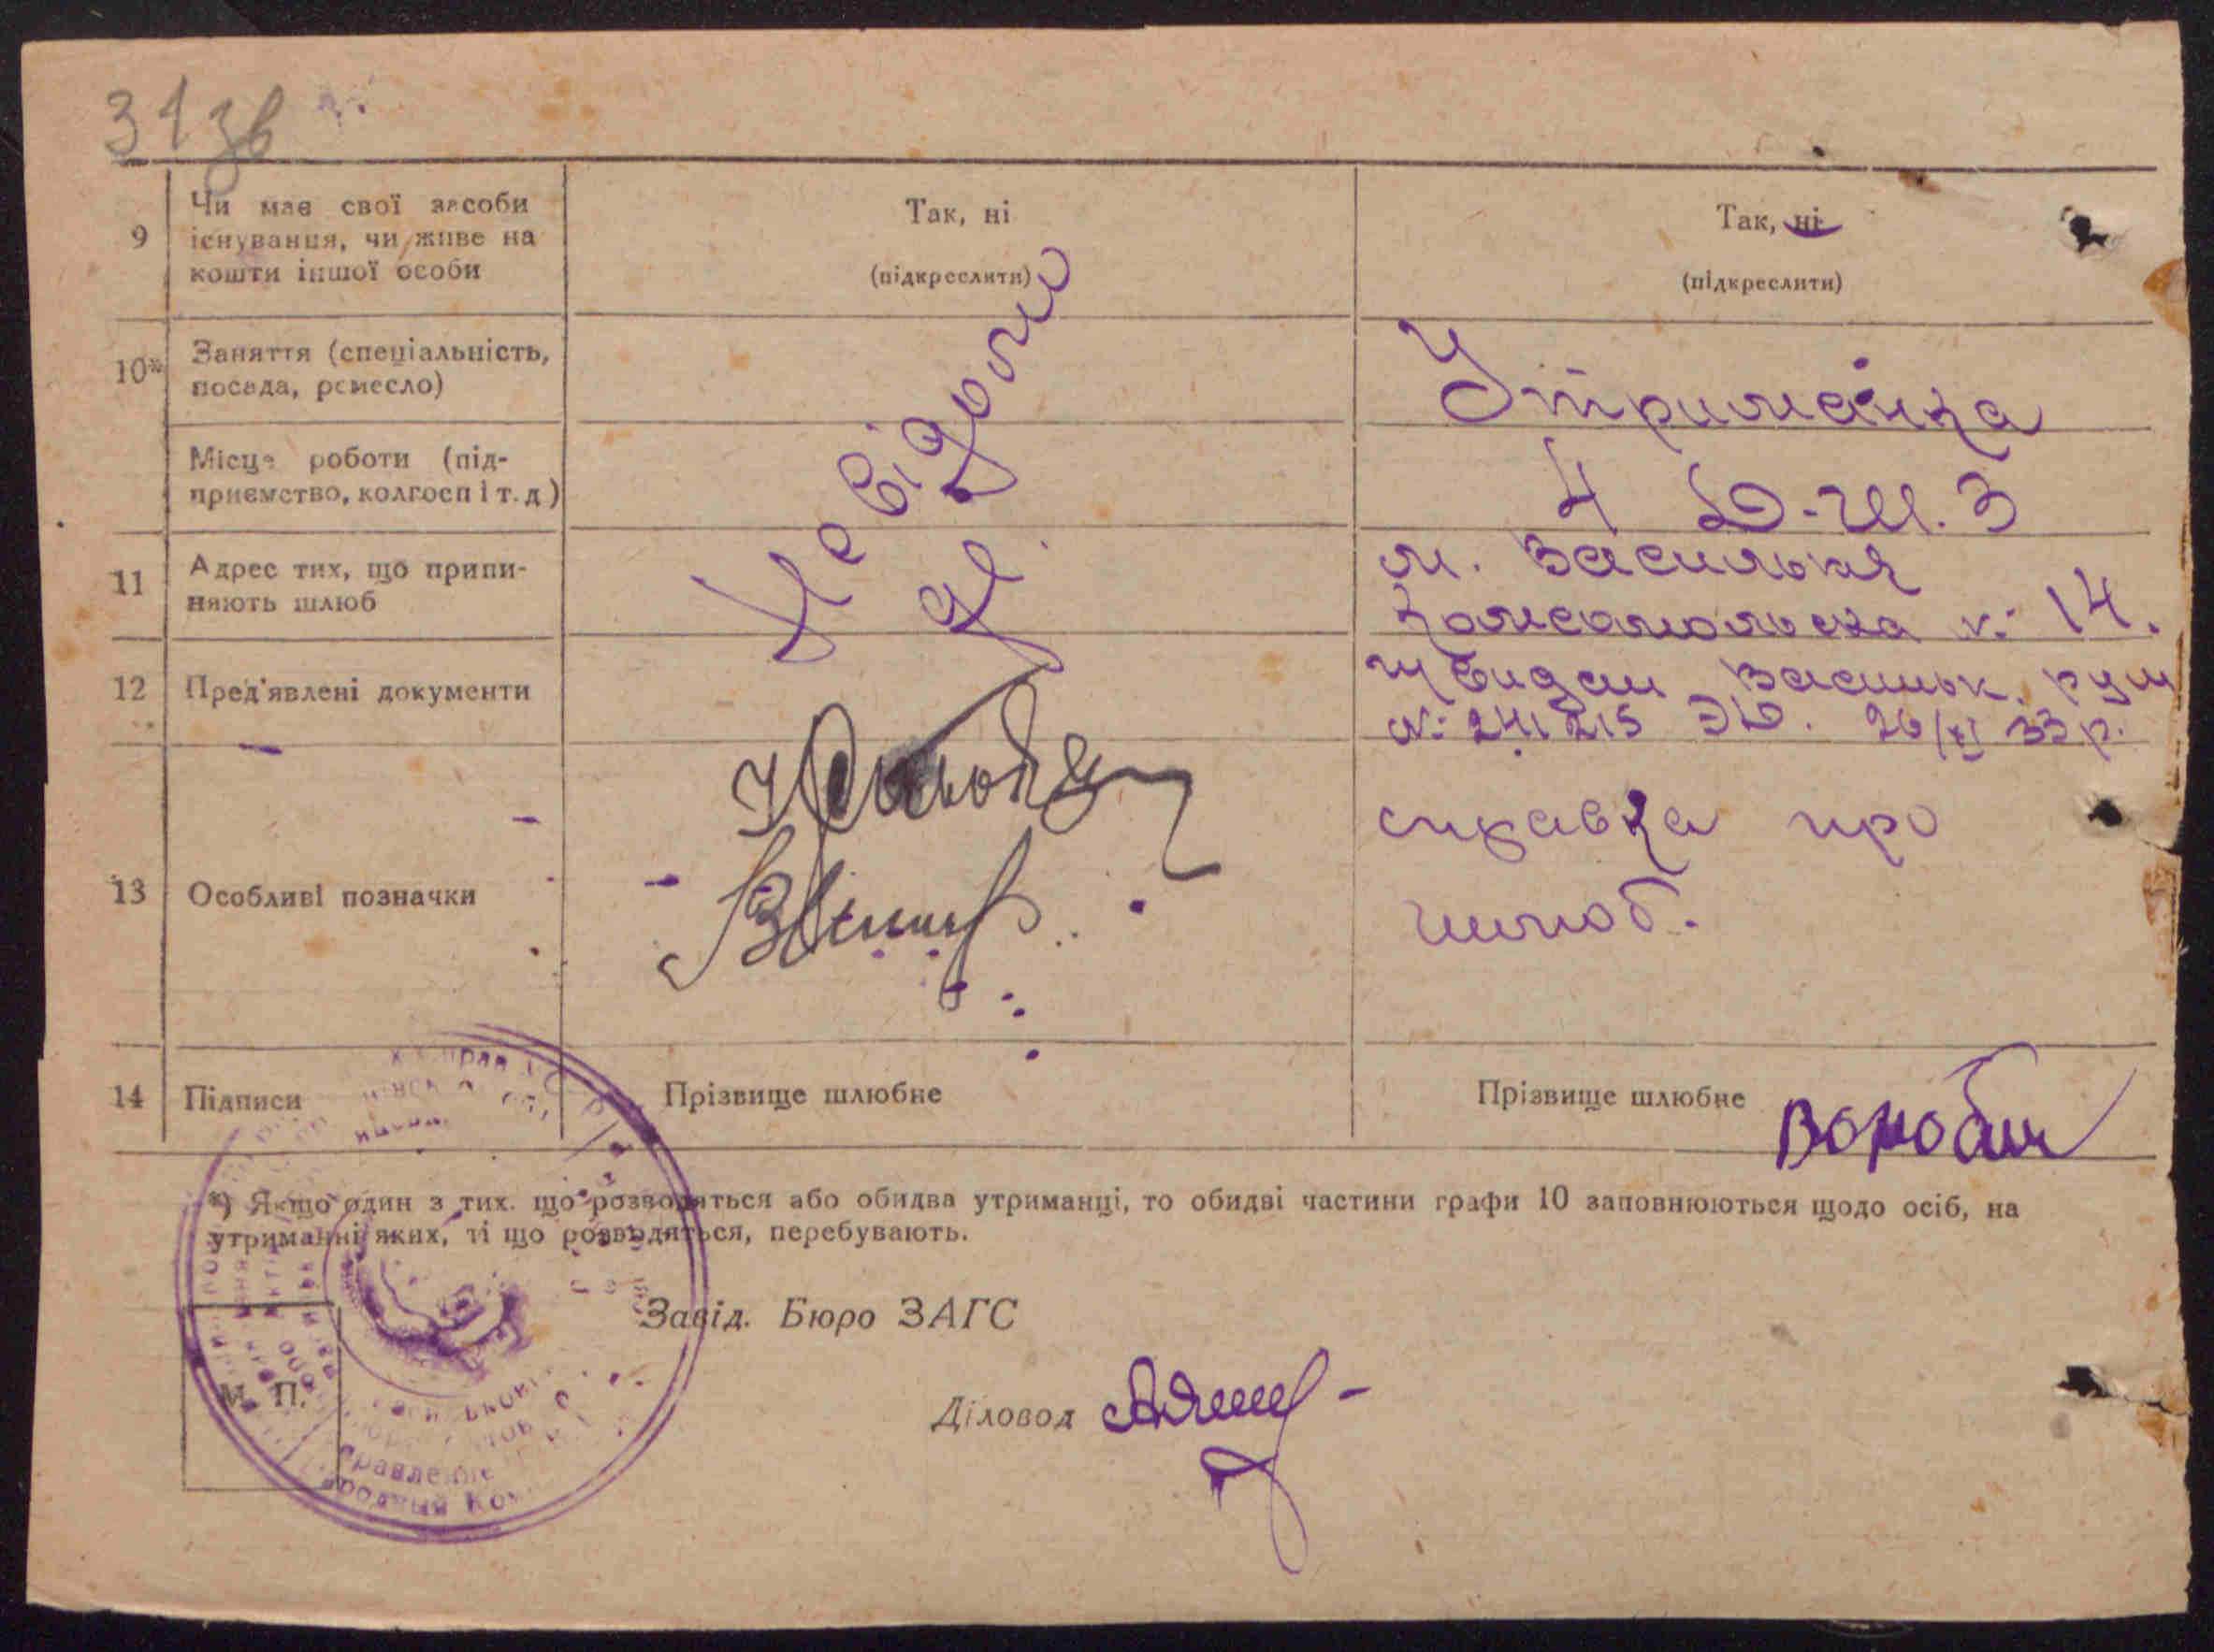 31 зв
9 Чи має свої засоби існування, чи живе на кошти іншої особи
Так, ні
(підкреслити)
Так, ні
(підкреслити)
10* Заняття (спеціальність, посада, ремесло)
Утриманка
Місце роботи (підприємство, колгосп і т. д)
4 Д-Ш. З
11 Адрес тих, що припиняють шлюб
Не відомо
де
м. Васильків
Комсомольска № 14.
12 Пред'явлені документи
Васильк.
№ 241215 26/XI 33 р.
13 Особливі позначки
справка про
шлюб.
14 Підписи
Прізвище шлюбне
Прізвище шлюбне
*) Якщо один з тих. що розводяться або обидва утриманці, то обидві частини графи 10 заповнюються щодо осіб, на
утриманні яких, ті що розводяться, перебувають.
Завід. Бюро ЗАГС
М. П.
Діловод